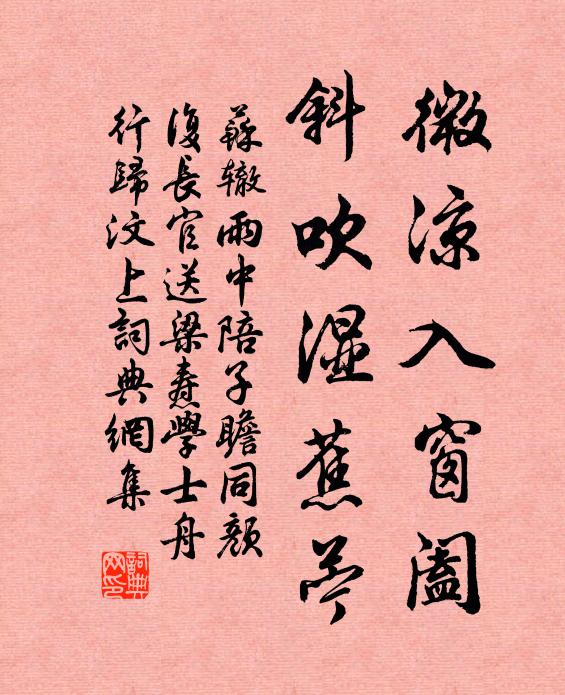 微涼入窗闔
斜吹湿蕉苧
蘇轍雨中陪子瞻同顏
復長官送梁焘學士舟
行歸汶上詞典網集
詞典
网印